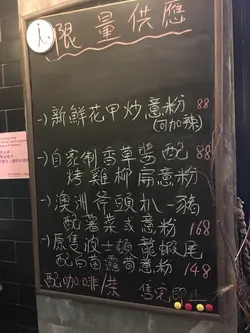 限量供應
-)新鮮花甲炒意粉 88
(可加辣)
-)自家制香草醬配 88
烤雞柳扁意粉
-)澳洲斧頭扒-豬
配薯菜或意粉 168
-)原隻波士頓龍蝦尾
配白蘆筍意粉 148
配咖啡/茶 售完即止